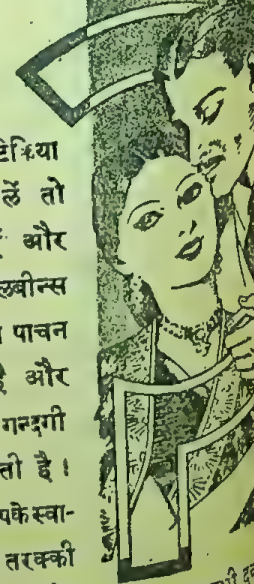 टिकिया
लें तो
और
लबीन्स
पाचन
है और
गन्दगी
ती है।
पके स्वा-
तरक्की